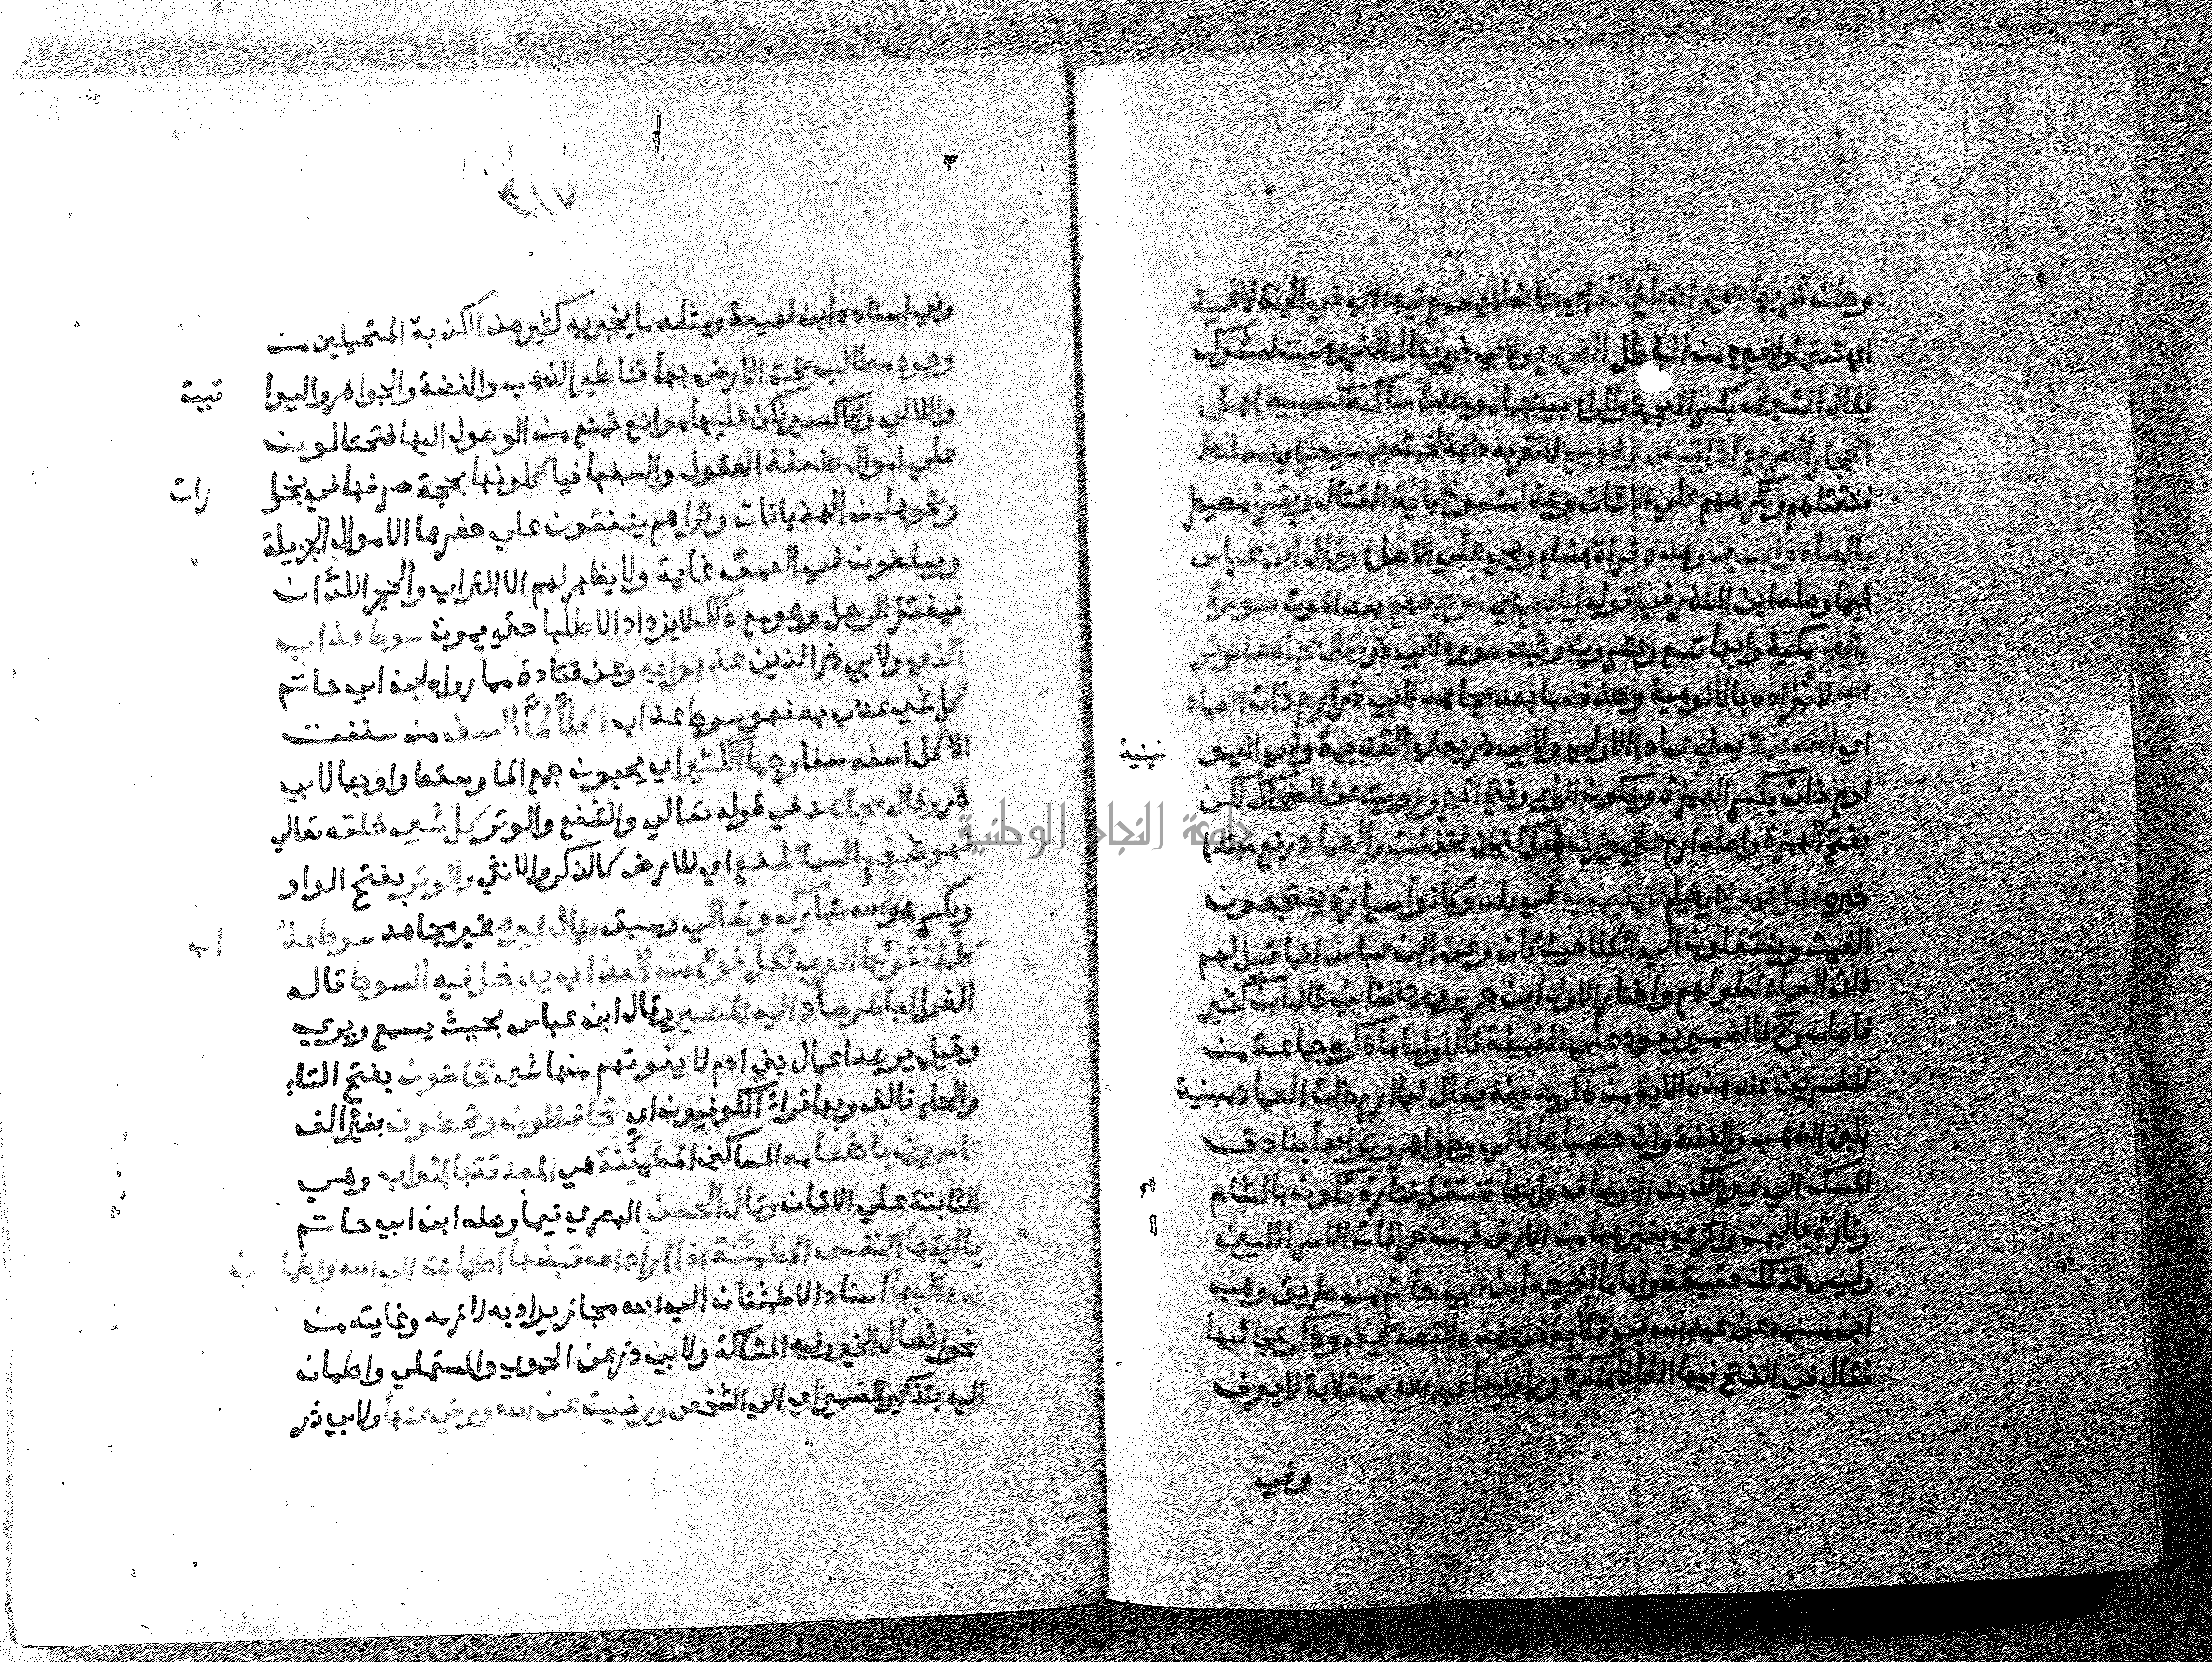 وحان شربها حميم ان بلغ اناه اي حان لا يسمع فيها اي في الجنة لاغية
اي شتما ولا غيره من الباطل الضريع ولابي ذر ويقال الضريع نبت له شوك
يقال الشبرق بكسر المعجمة والراء بينهما موحدة ساكنة تسميه اهل
الحجاز الضريع اذا يبس وهو سم لا تقربه دابة لخبثه بمسيطر اي بمسلط
فتقتلهم وتكرههم علي الايمان وهذا منسوخ باية القتال ويقرا مصيطر
بالصاد والسين وهذه قراة هشام وهي علي الاصل وقال ابن عباس
فيما وصله ابن المنذر في قوله ايابهم اي مرجعهم بعد الموت سورة
والفجر مكية وايها تسع وعشرون وثبت سورة لابي ذر وقال مجاهد الوتر
الله لانفراده بالالوهية وحذف ما بعد مجاهد لابي ذر ارم ذات العماد
اي القديمة يعني عادا الاولي ولابي ذر يعني القديمة وفي اليو نينية
ارم ذات بكسر الهمزة وسكون الراء وفتح الميم ورويت عن الضحاك لكن
بفتح الهمزة واصله ارم علي وزن فعل كفخذ فخففت والعماد رفع مبتدا
خبره اهل عمود اي خيام لا يقيمون في بلد وكانوا سيارة ينتجعون
الغيث وينتقلون الي الكلا حيث كان وعن ابن عباس انما قيل لهم
ذات العماد لطولهم واختار الاول ابن جرير ورد الثاني قال ابن كثير
فاصاب وح فالضمير يعود علي القبيلة قال واما ما ذكره جماعة من
المفسرين عند هذه الاية من ذكر مدينة يقال لها ارم ذات العماد مبنية
بلبن الذهب والفضة وان حصباها لالي وجواهر وترابها بنادق
المسك الي غير ذلك من الاوصاف وانها تنتقل فتارة تكون بالشام
وتارة باليمن واخري بغيرهما من الارض فمن خرافات الاسرائليين
وليس لذلك حقيقة واما ما اخرجه ابن ابي حاتم من طريق وهب
ابن منبه عن عبد الله بن قلابة في هذه القصة ايضا وذكر عجائبها
فقال في الفتح فيها الفاظ منكرة وراويها عبد الله بن قلابة لا يعرف
وفي
٤١٧
وفي اسناده ابن لهيعة ومثله ما يخبر به كثير من الكذبة المتحيلين من
وجود مطالب تحت الارض بها قناطير الذهب والفضة والجواهر واليوا قيت
واللالي والاكسير لكن عليها موانع تمنع من الوصول اليها فتحتالون
علي اموال ضعفة العقول والسفها فياكلونها بحجة صرفها في بخو رات
ونحوها من الهذيانات وتراهم ينفقون علي حفرها الاموال الجزيلة
ويبلغون في العمق غاية ولا يظهر لهم الا التراب والحجر اللذان
فيفتقر الرجل وهو مع ذلك لا يزداد الا طلبا حتي يموت سوط عذاب
الذي ولابي ذر الذين عذبوا به وعن قتادة مما رواه ابن ابي حاتم
كل شي عذب به فهو سوط عذاب اكلا لما السف من سففت
الاكل اسفه سفا وجما الكثير اي يحبون جمع المال وسقط واو وجما لابي
ذر وقال مجاهد في قوله تعالي والشفع والوتر كل شي خلقه تعالي
فهو شفع السما شفع اي للارض كالذكر والانثي والوتر بفتح الواو
وبكسر هو الله تبارك وتعالي وسبق وقال غيره غير مجاهد سوط عذ اب
كلمة تقولها العرب لكل نوع من العذاب يدخل فيه السوط قاله
الفرا لبالمرصاد اليه المصير وقال ابن عباس بحيث يسمع ويري
وقيل يرصد اعمال بني ادم لا يفوتهم منها شي تحاضون بفتح التاء
والحاء فالف وبها قراة الكوفيون اي تحافظون وتحضون بغير الف
تامرون باطعامه المساكين المطمئنة هي المصدقة بالثواب وهي
الثابتة علي الايمان وقال الحسن البصري فيما وصله ابن ابي حاتم
يا ايتها النفس المطمئنة اذا اراد الله قبضها اطمانت الي الله واطما ن
الله اليها اسناد الاطمئنان الي الله مجاز يراد به لازمه وغايته من
نحو ايصال الخير وفيه المشاكلة ولابي ذر عن الحموي والمستملي واطمان
اليه بتذكير الضمير اي الي الشخص ورضيت عن الله ورضي عنها ولابي ذر